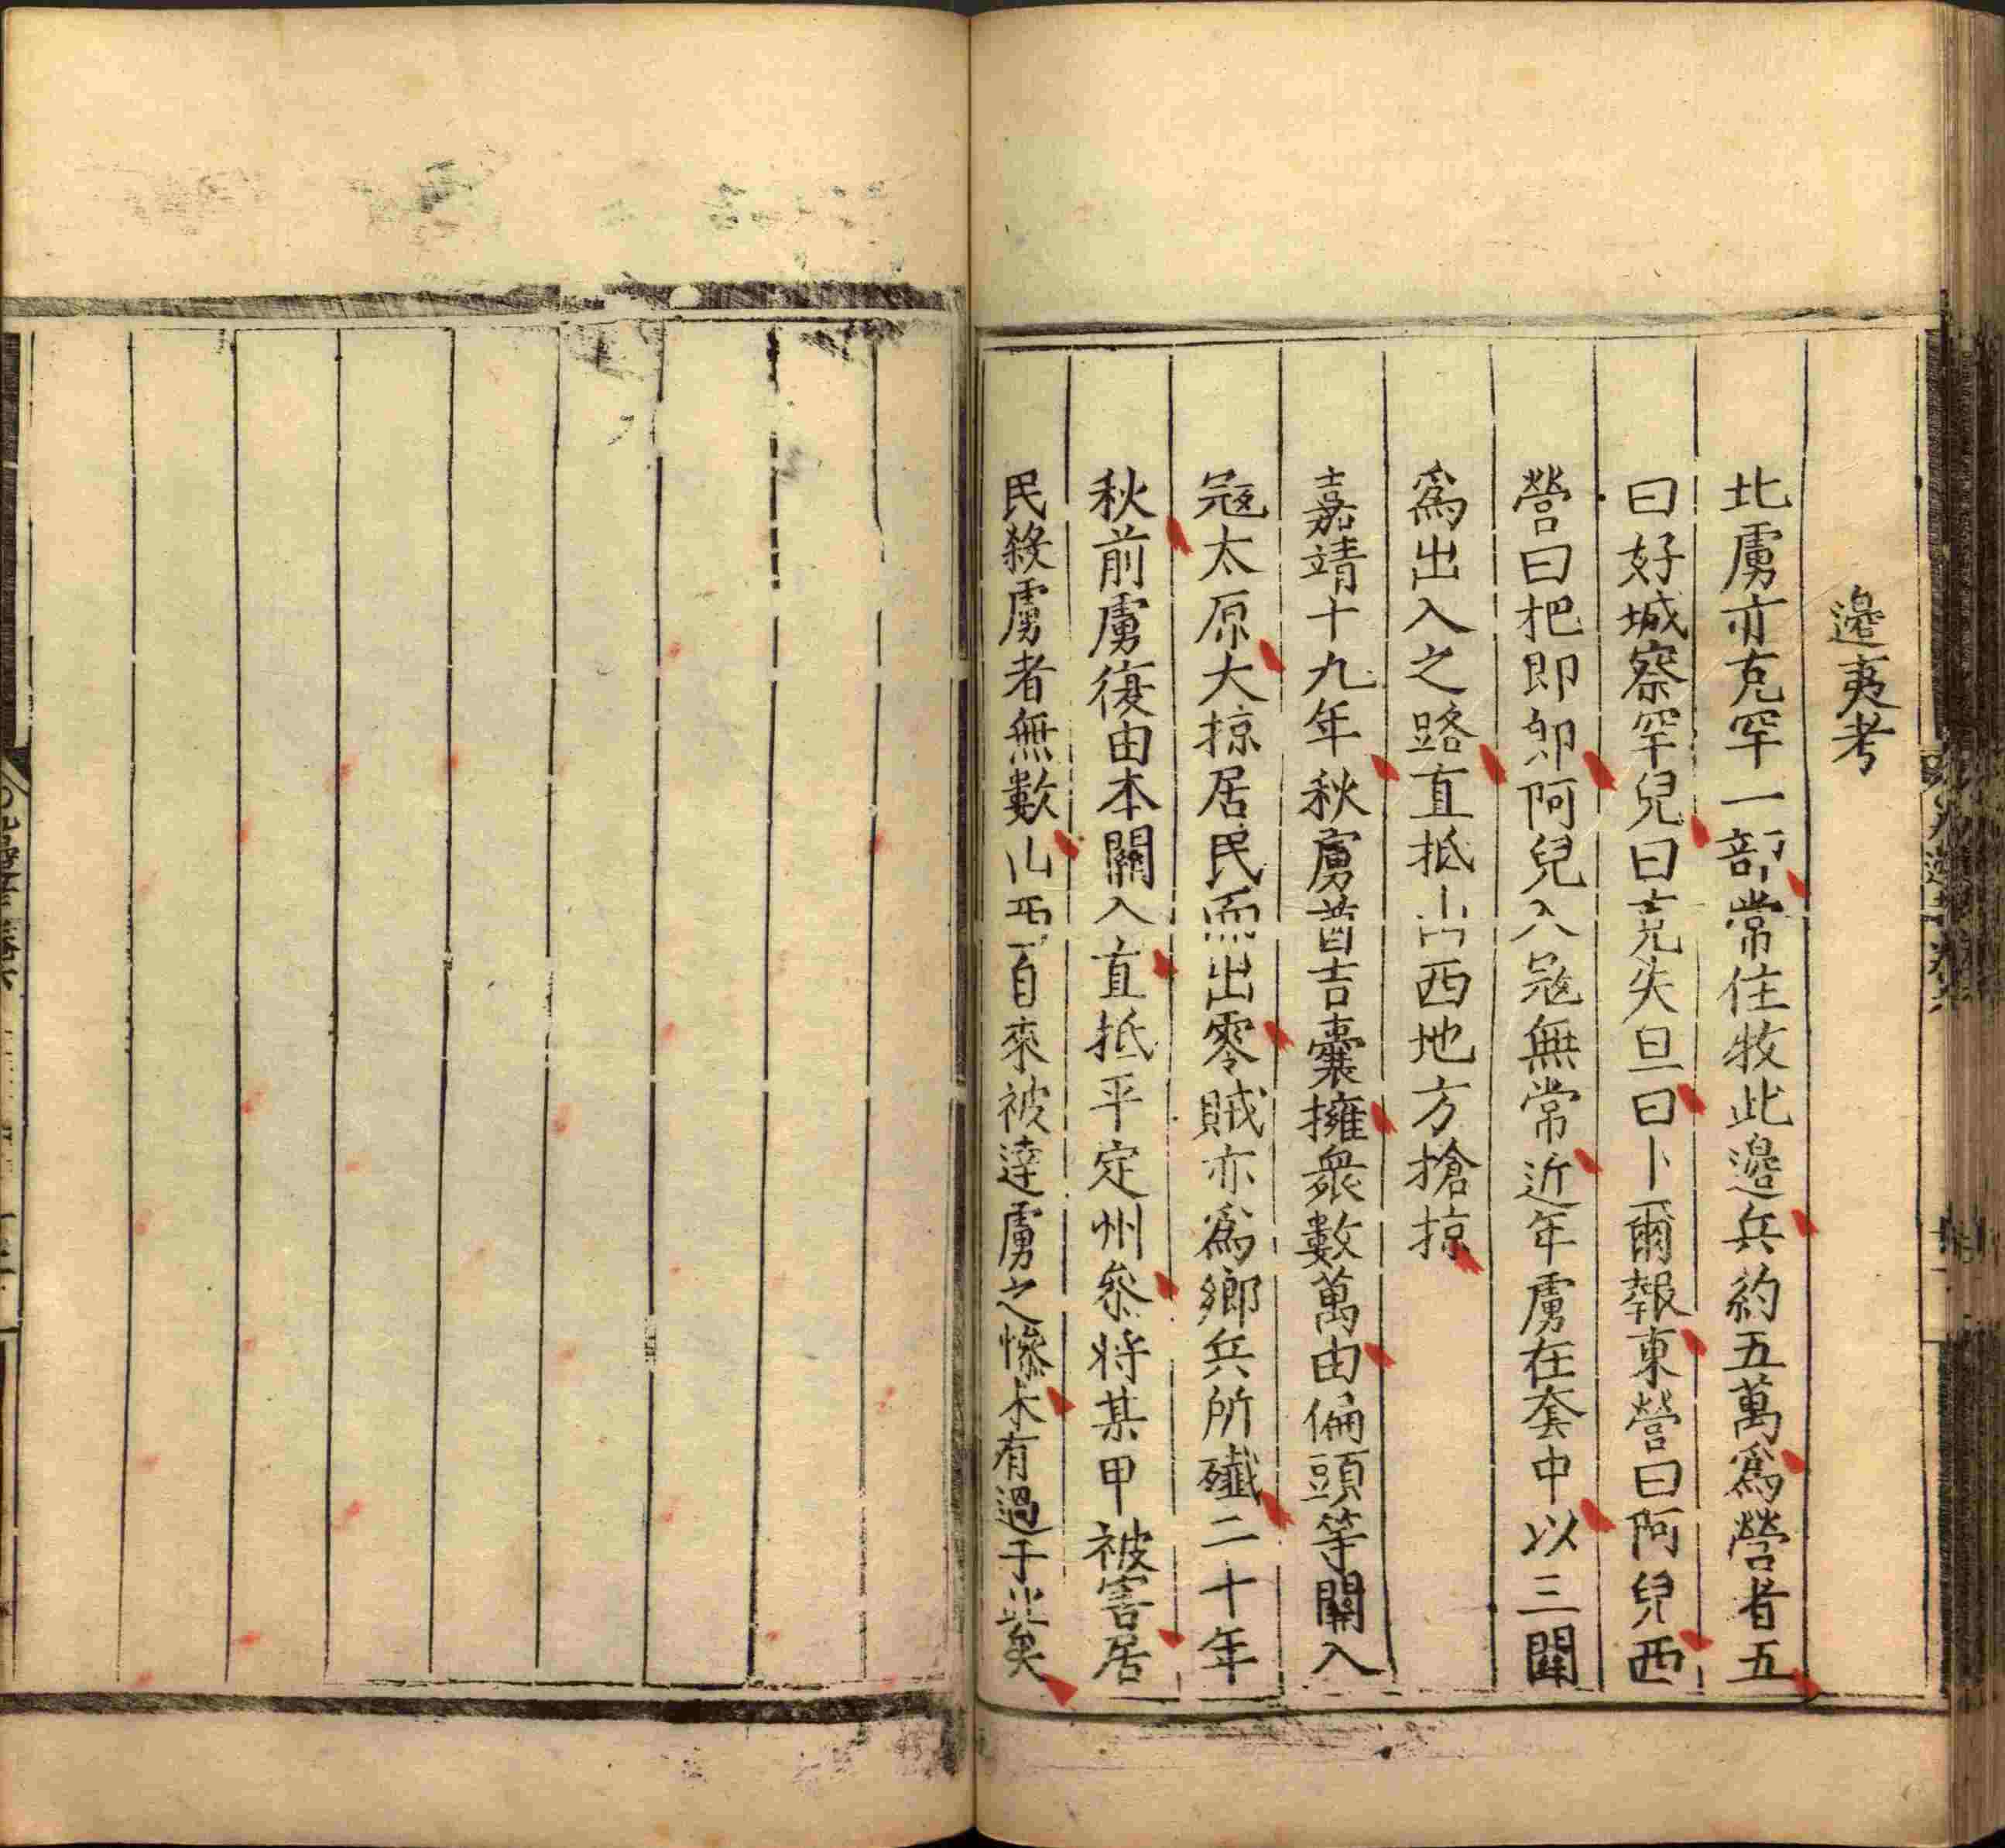 邉夷考
北虜亦克罕一部常住牧此邉兵約五萬爲營者五
曰好城察罕兒曰克失旦曰卜爾報東營曰阿兒西
營曰把即郍阿兒入冦無常近年虜在套中以三關
爲出入之路直抵山西地方搶掠
嘉靖十九年秋虜酋吉囊擁衆數萬由偏頭等關入
冦太原大掠居民而出零賊亦爲鄉兵所殲二十年
秋前虜復由本關入直抵平定州叅將某甲被害居
民殺虜者無數山西自來被達虜之慘未有過于此矣